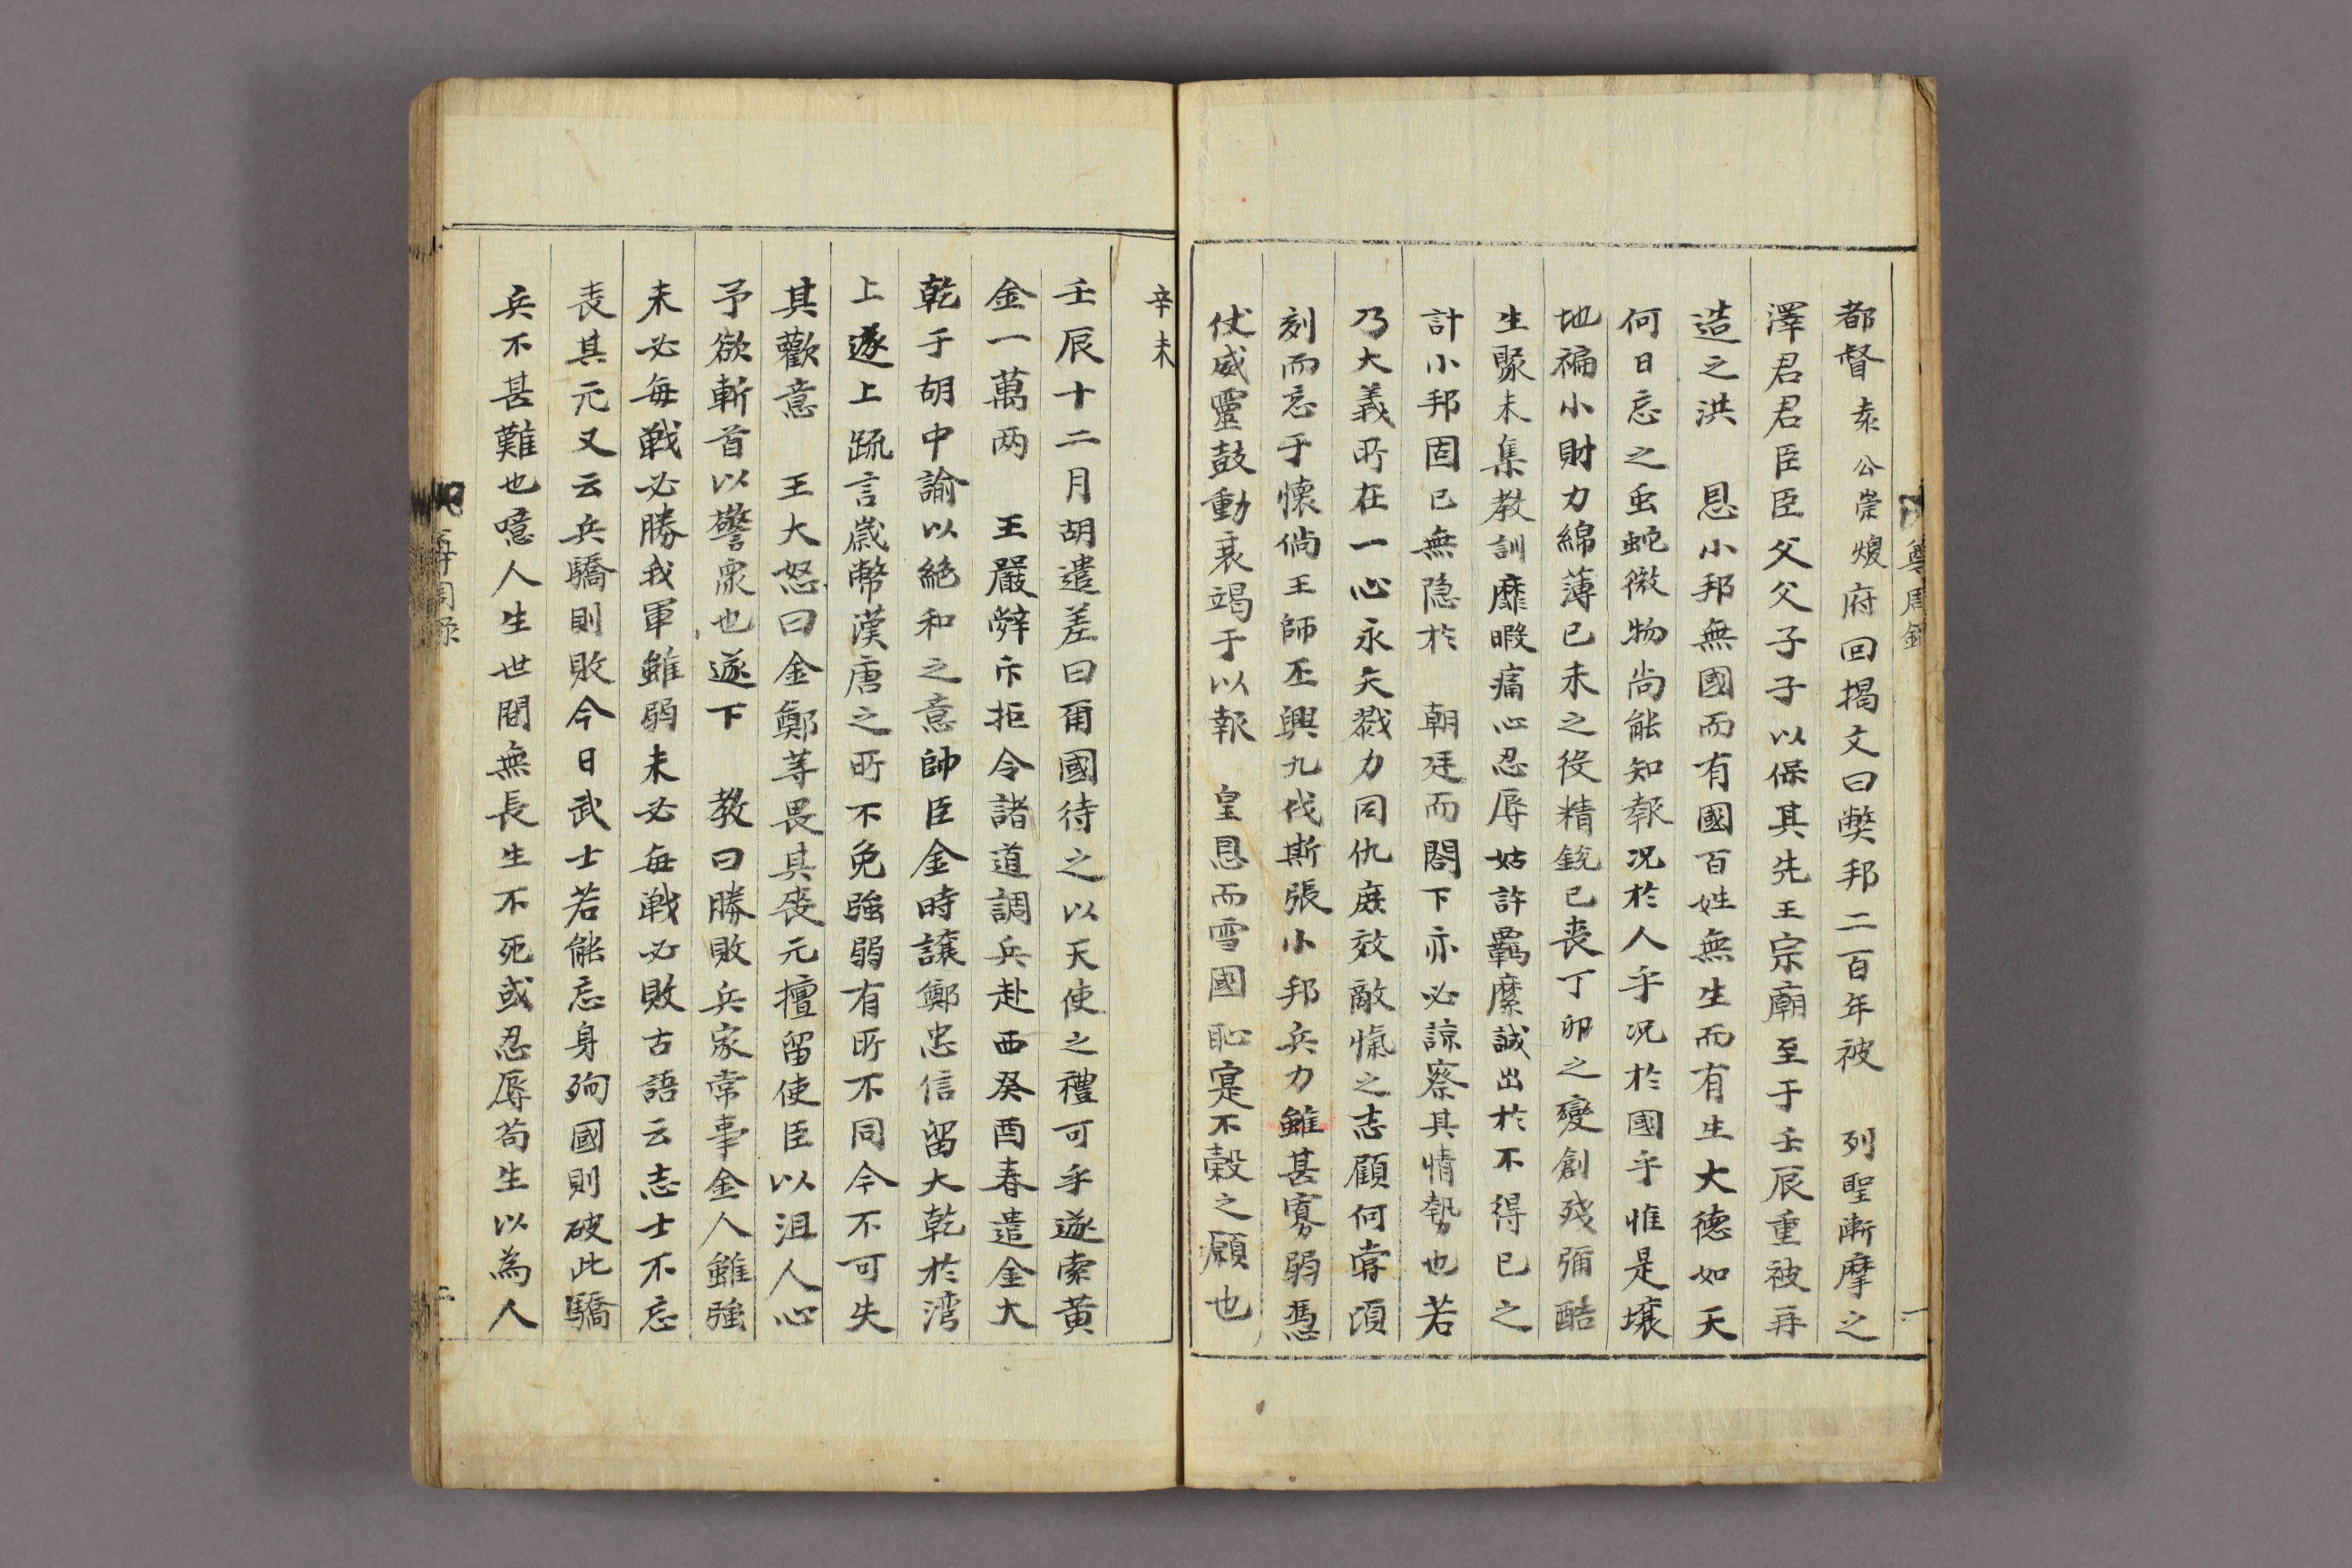 都督袁公崇煥府回揭文曰弊邦二百年被　列聖漸摩之
澤君君臣臣父父子子以保其先王宗廟至于壬辰重被再
造之洪　恩小邦無國而有國百姓無生而有生大德如天
何日忘之虫蛇微物尚能知報况於人乎况於國乎惟是壤
地褊小財力綿薄已未之役精銳已丧丁卯之變創殘彌酷
生聚未集教訓靡暇痛心忍辱姑許羈縻誠出於不得已之
計小邦固已無隐於　朝廷而閤下亦必諒察其情勢也若
乃大義所在一心永矢戮力同仇庶效敵愾之志顧何嘗頃
刻而忘于懷倘王師丕興九伐斯張小邦兵力雖甚寡弱憑
仗威靈鼓動衰竭于以報　皇恩而雪國恥寔不穀之願也
辛未
壬辰十二月胡遣差曰爾國待之以天使之禮可乎遂索黄
金一萬两　王嚴辭斥拒令諸道調兵赴西癸酉春遣金大
乾于胡中諭以絶和之意帥臣金時讓鄭忠信留大乾於湾
上遂上疏言嵗幣漢唐之所不免強弱有所不同今不可失
其歡意　王大怒曰金鄭等畏其丧元擅留使臣以沮人心
予欲斬首以警衆也遂下　教曰勝敗兵家常事金人雖強
未必每戦必勝我軍雖弱未必每戦必敗古語云志士不忘
丧其元又云兵驕則敗今日武士若能忘身殉國則破此驕
兵不甚難也噫人生世間無長生不死或忍辱苟生以為人